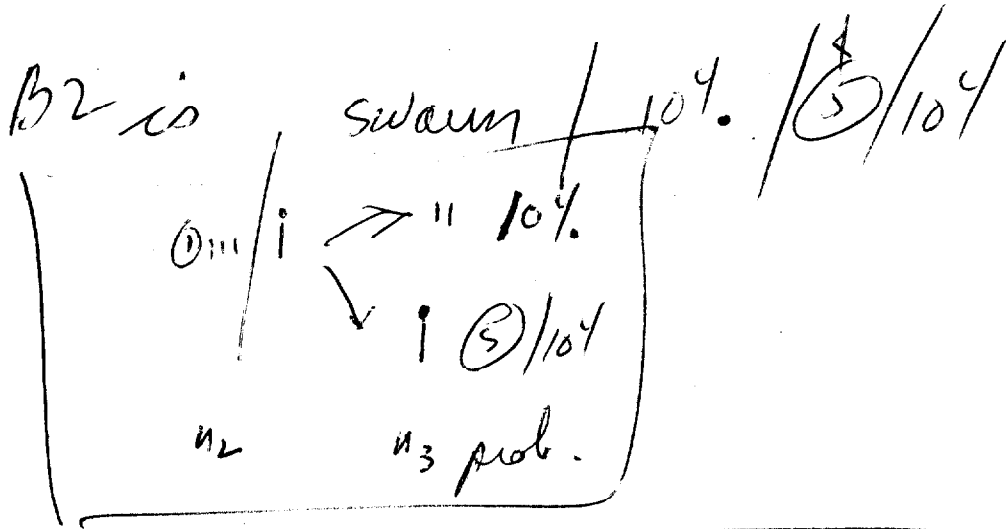 B2 is / swarm / 10%. / ⑤ / 104
①||| / i → " 10%.
i ⑤/104
n2 n3 prob.